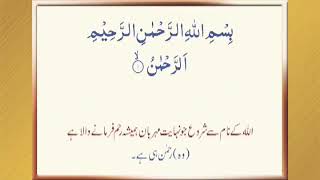 بِسْمِ اللهِ الرَّحْمٰنِ الرَّحِيْمِ
اَلرَّحْمٰنُ ۙ
اللہ کے نام سے شروع جو نہایت مہربان ہمیشہ رحم فرمانے والا ہے
(وہ) رحمٰن ہی ہے۔